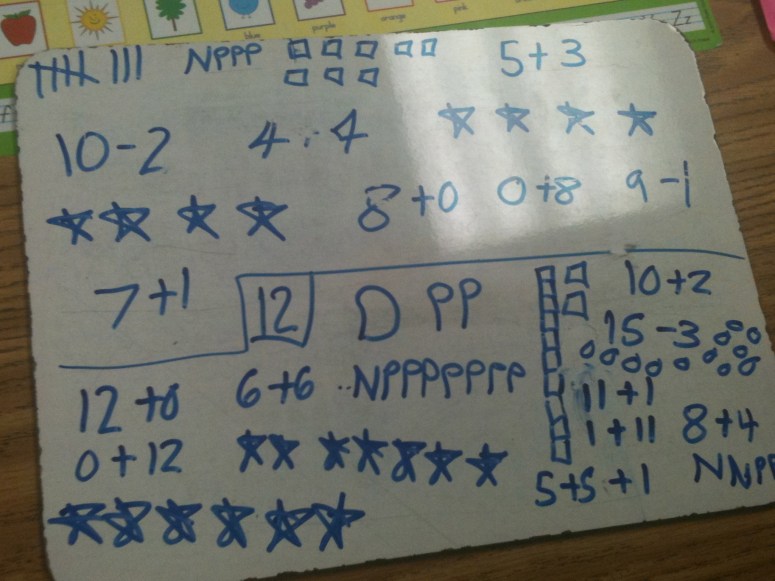 blue purple orange pink
NPPP 5+3
10-2 4+4
8+0 0+8 9-1
7+1 12 D PP 10+2
15-3
12+0 6+6 NPPPPPPP 11+1
0+12 1+11 8+4
5+5+1 NNPP